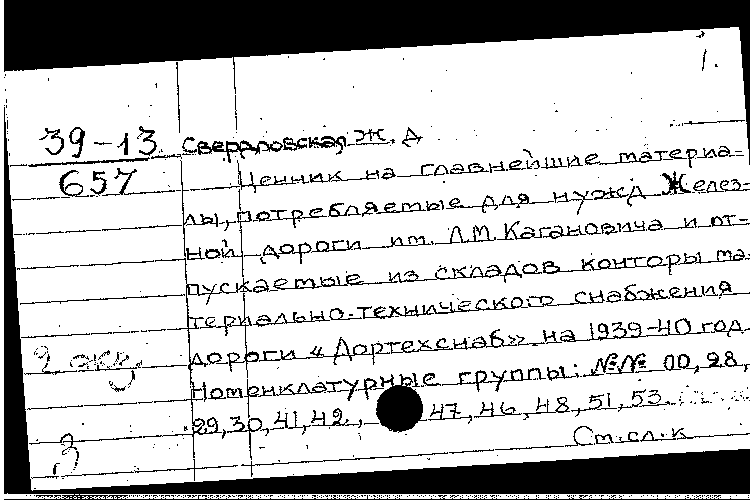 1.
39-13
657
Свердловская Ж. Д
Ценник на главнейшие материа-
лы, потребляемые для нужд Желез-
ной дороги им. Л.М. Кагановича и от-
пускаемые из складов конторы ма-
териально-технического снабжения
дороги «Дортехснаб» на 1939-40 год.
Номенклатурные группы: №№ 00, 28,
29, 30, 41, 42., 47, 46, 48, 51, 53.
2 экз
3
См.сл.к